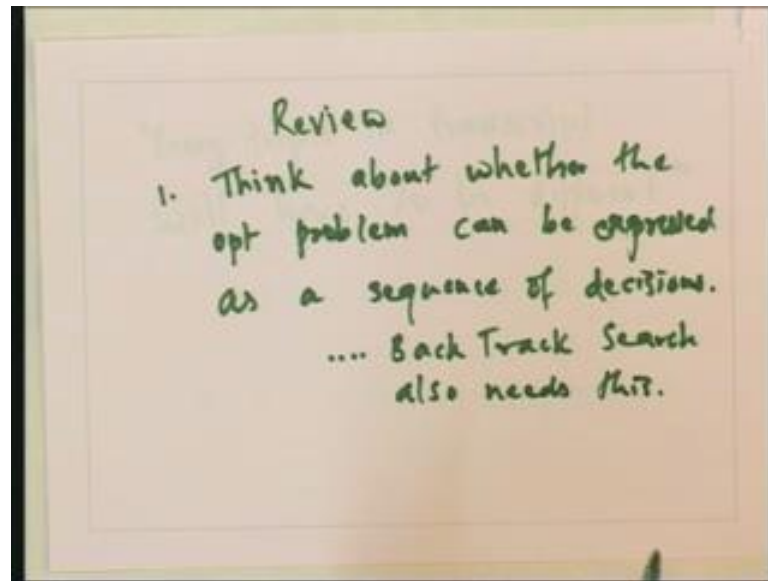 Review
1. Think about whether the
opt problem can be expressed
as a sequence of decisions.
.... Back Track Search
also needs this.